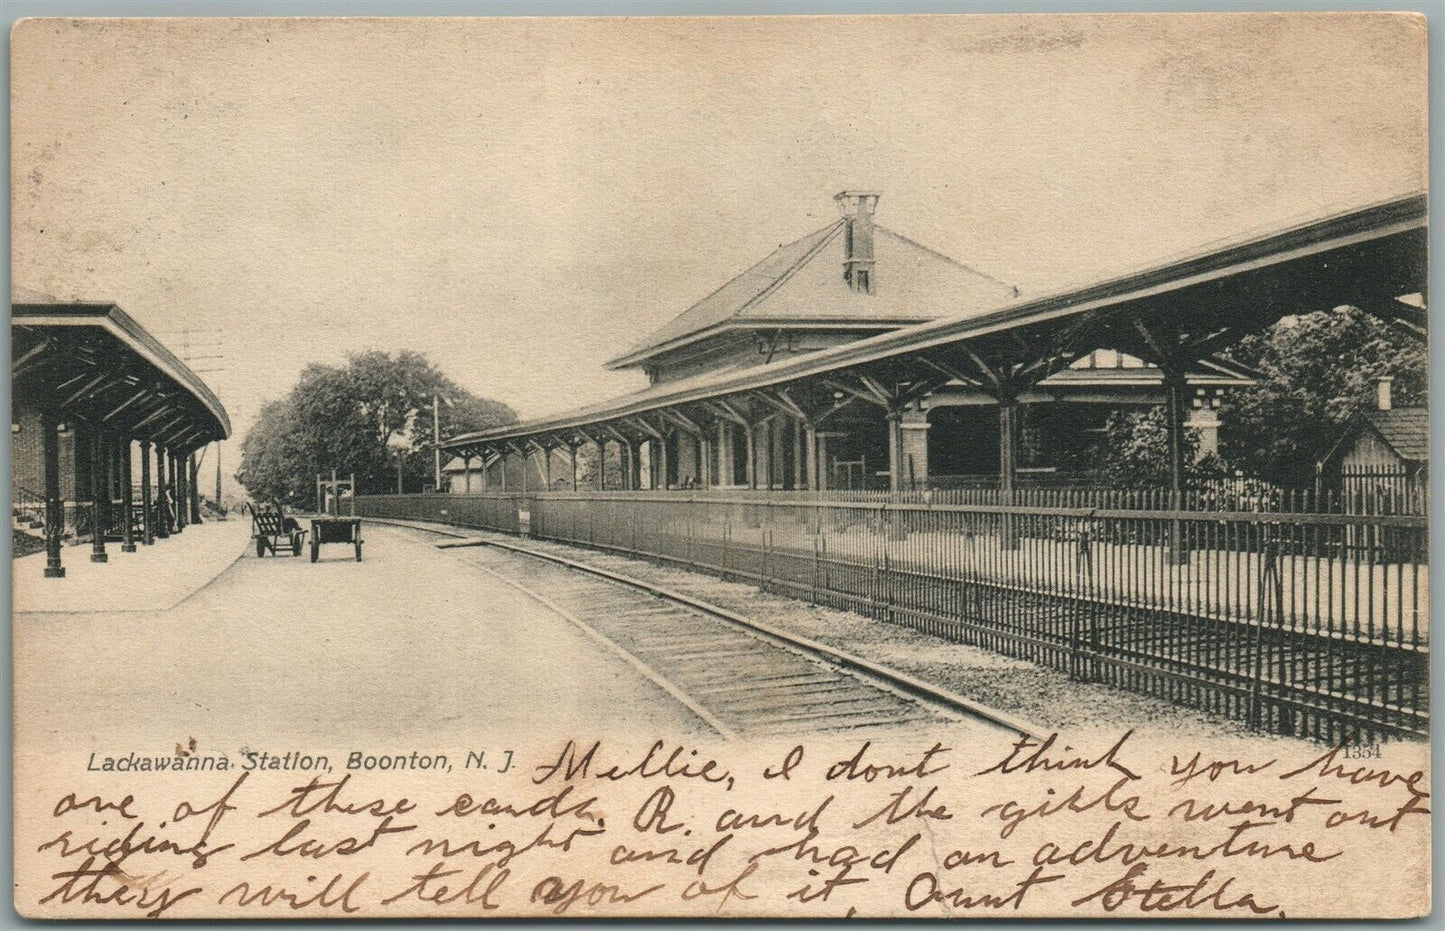 1354
Lackawanna Station, Boonton, N. J. Mellie, I dont think you have
one of these cards. R. and the girls went out
riding last night and had an adventure
they will tell you of it, Aunt Stella.